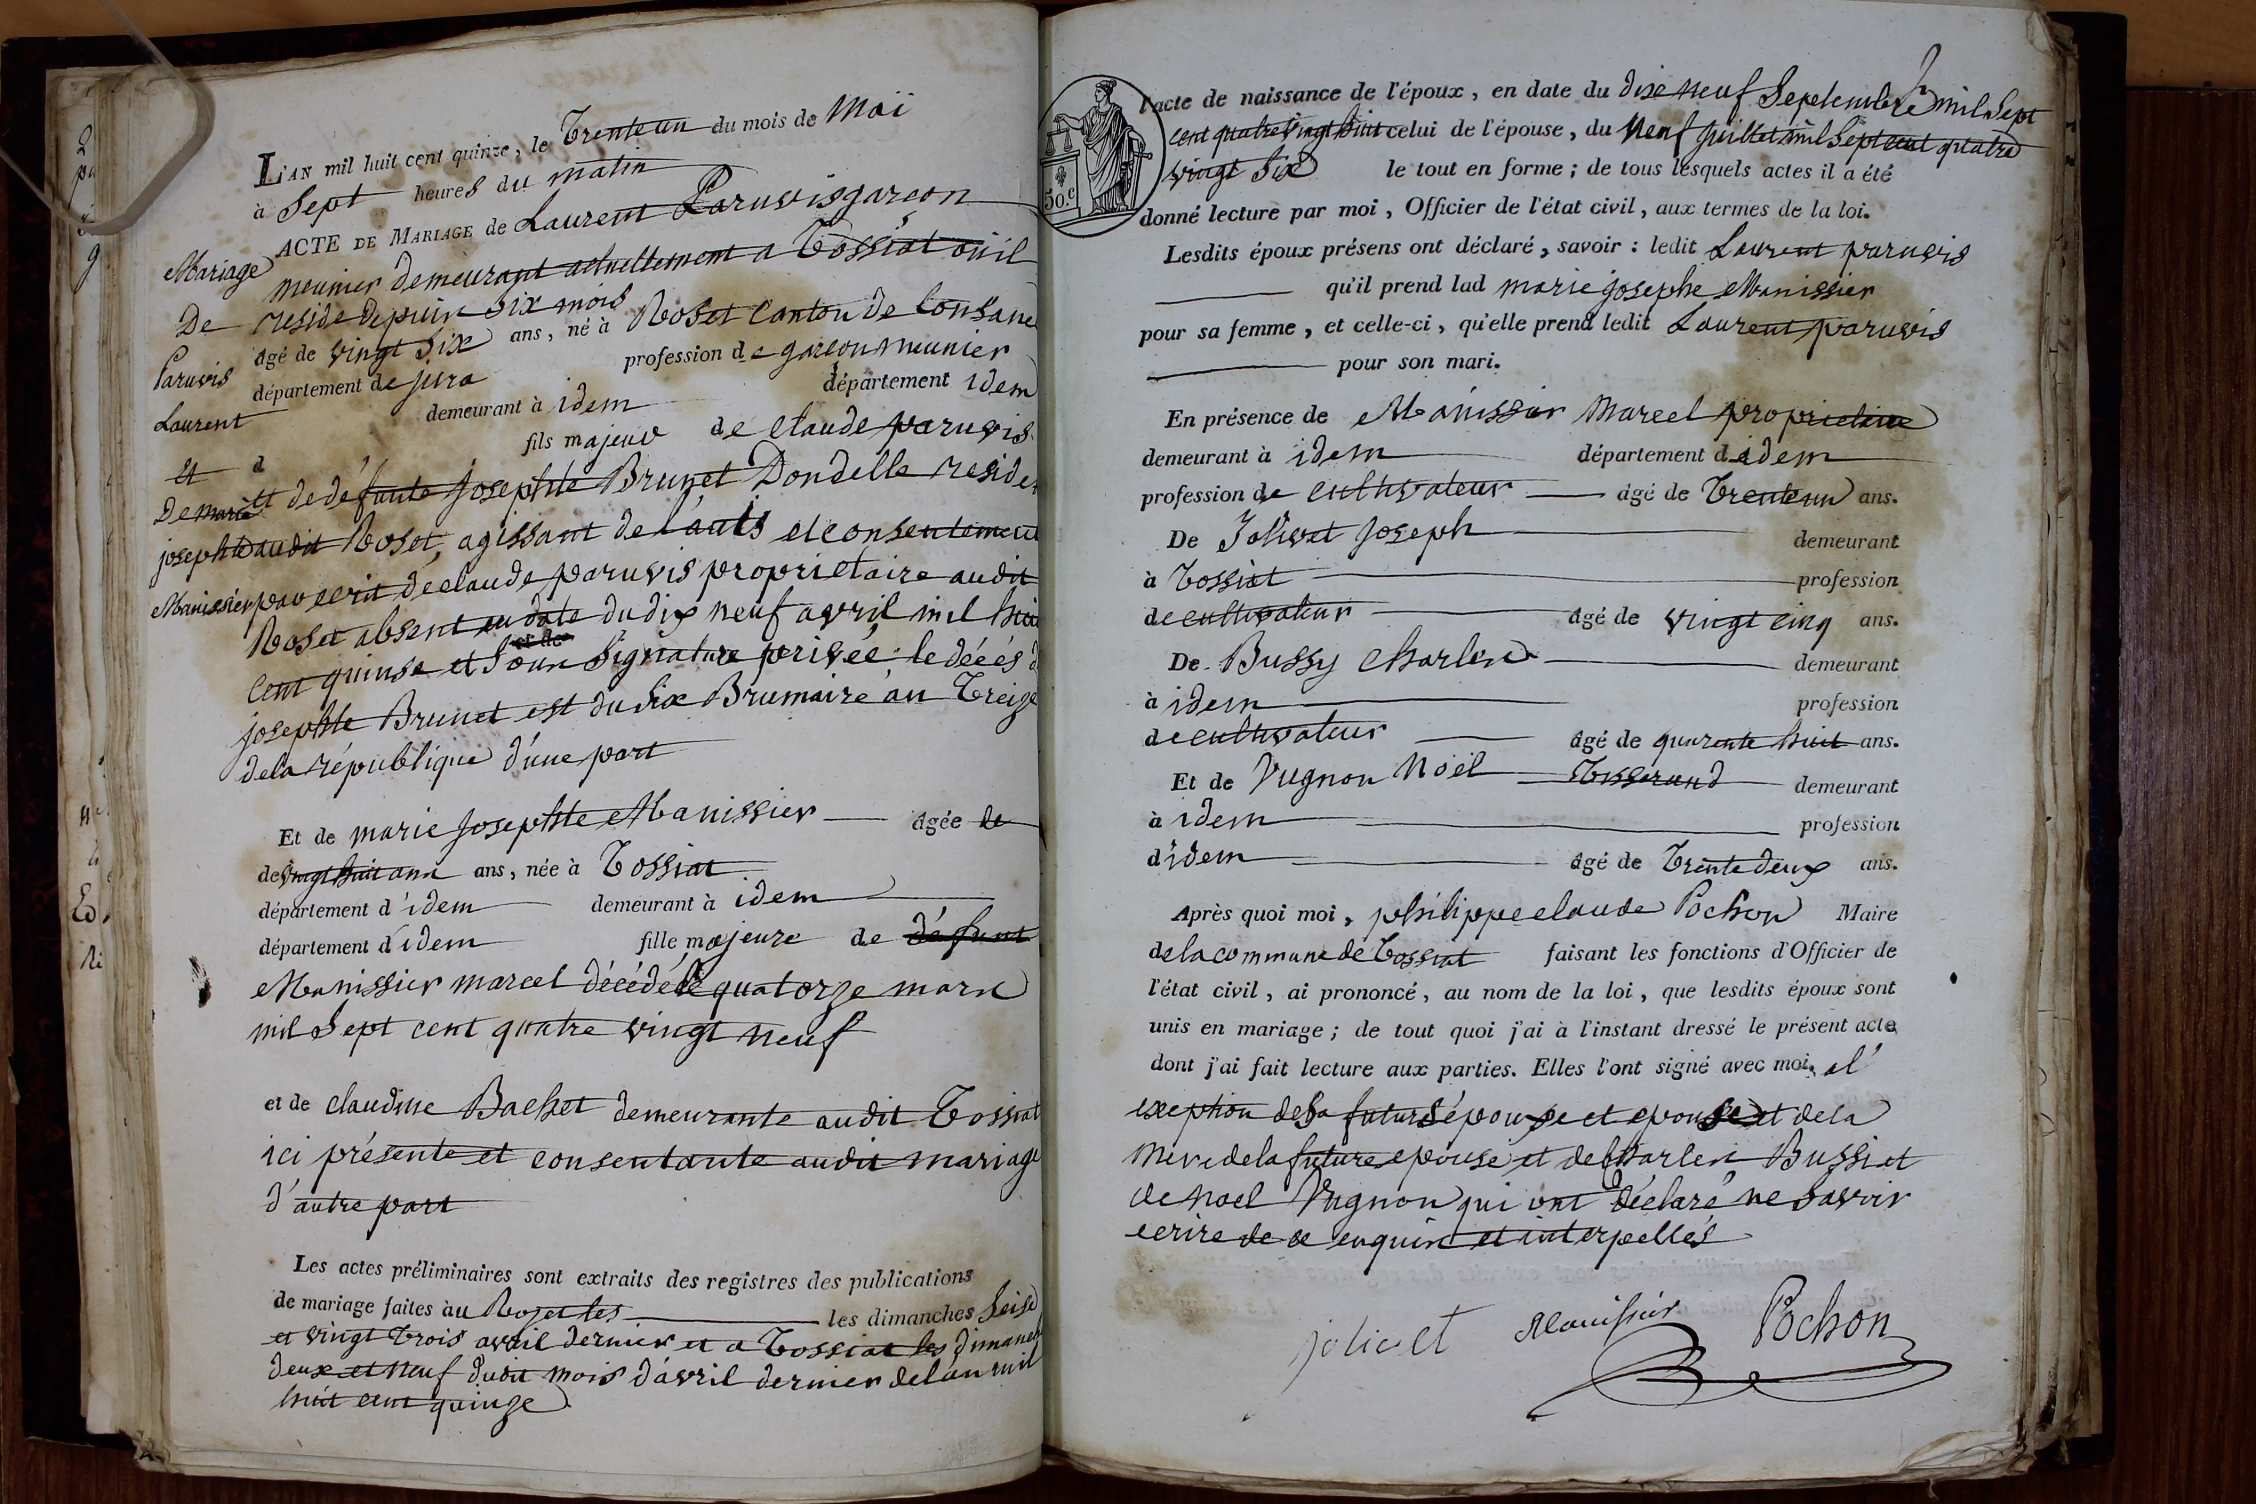 L'AN mil huit cent quinze, le Trente un du mois de Mai
à Sept heures du matin
ACTE DE MARIAGE de Laurent Paruvis garçon
meunier demeurant actuellement a Tossiat ou il
reside depuis six mois
agé de vingt six ans, né à Roset Canton de
département de jura profession de garçon meunier
demeurant à idem département idem
fils majeur de Claude paruvis
et de défunte Josephte Brunet Dondelle reside
audit Roset, agissant de l'avis et consentement
par ecrit de claude paruvis proprietaire audit
Roset absent en date du dix neuf avril mil huit
cent quinse et sous signature privée le décés d
josephte Brunet est du six Brumaire an Treize
de la république d'une part
Mariage
De
Paruvis
Laurent
Et
De marie
josephte
Manissier
Et de marie Josephte Manissier agée de
de vingt huit ans ans, née à Tossiat
département d'idem demeurant à idem
département d'idem fille majeure de défunt
Manissier marcel décédé le quatorze mars
mil Sept cent quatre vingt neuf
et de claudine Bachet demeurante audit Tossiat
ici présente et consentante audit mariage
d'autre part
Les actes préliminaires sont extraits des registres des publications
de mariage faites àu Roset les les dimanches Seise
et vingt trois avril dernier et a Tossiat les dimanch
deux et neuf dudit mois d'avril dernier de l'an mil
huit cent quinze
l'acte de naissance de l'époux, en date du dixe neuf Septembre mil Sept
cent quatre vingt huit celui de l'épouse, du Neuf juillet mil Sept cent quatre
vingt six le tout en forme; de tous lesquels actes il a été
donné lecture par moi, Officier de l'état civil, aux termes de la loi.
50.c
Lesdits époux présens ont déclaré, savoir : ledit Laurent paruvis
qu'il prend lad marie josephe Manissier
pour sa femme, et celle-ci, qu'elle prend ledit Laurent paruvis
pour son mari.
En présence de Manissier Marcel proprietaire
demeurant à idem département d idem
profession de cultivateur âgé de Trente un ans.
De Jolivet Joseph demeurant
à Tossiat profession
de cultivateur âgé de vingt cinq ans.
De Bussy Charles demeurant
à idem profession
de cultivateur âgé de quarente huit ans.
Et de Vugnon Noël Tisserand demeurant
à idem profession
d'idem âgé de Trente deux ans.
Après quoi moi, philippe claude Pochon Maire
de la commune de Tossiat faisant les fonctions d'Officier de
l'état civil, ai prononcé, au nom de la loi, que lesdits époux sont
unis en mariage; de tout quoi j'ai à l'instant dressé le présent acte
dont j'ai fait lecture aux parties. Elles l'ont signé avec moi. a l'
exeption de épouse et epouse et de la
mere de la future epouse et de Charles Bussi et
de Noel Vugnon qui ont déclaré ne savoir
ecrire de ce enquis et interpellés
jolivet Manissier Pochon